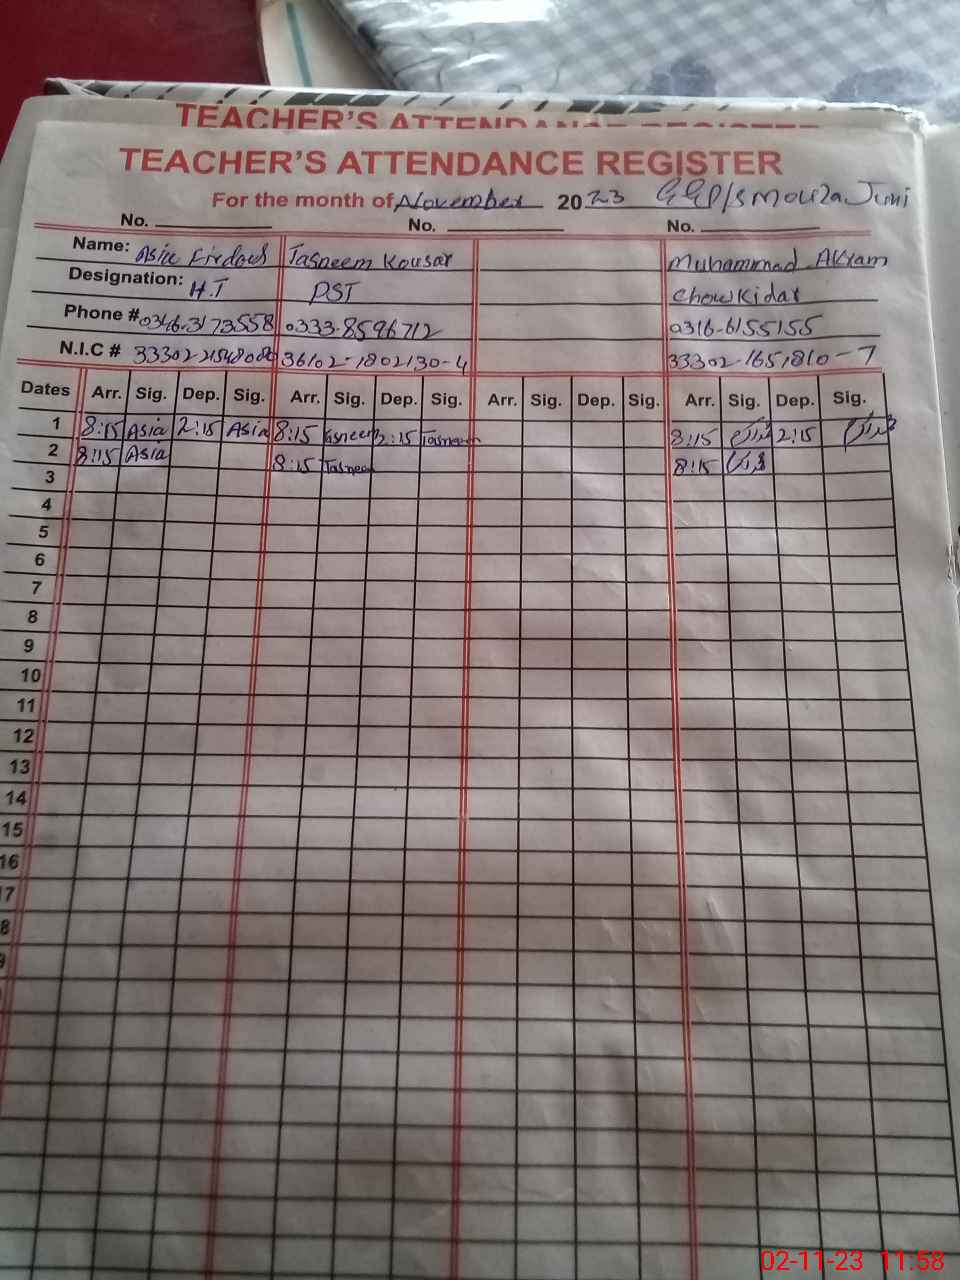 TEACHER'S ATTENDANCE REGISTER
TEACHER'S ATTENDANCE REGISTER
For the month of November 2023 GGP/S Mouza Juni
No. No. No.
Name: Asia Firdous Tasneem Kousar Muhammad Akram
Designation: H.T PST Chowkidar
Phone # 0346-3173558 0333-8596712 0316-6155155
N.I.C # 36102-1802130-4 33302-1651810-7
Dates Arr. Sig. Dep. Sig. Arr. Sig. Dep. Sig. Arr. Sig. Dep. Sig. Arr. Sig. Dep. Sig.
1 8:15 Asia 2:15 Asia 8:15 Tasneem 2:15 Tasneem 8:15 2:15
2 8:15 Asia 8:15 Tasneem 8:15
3
4
5
6
7
8
9
10
11
12
13
14
15
16
17
8
9
02-11-23 11:58